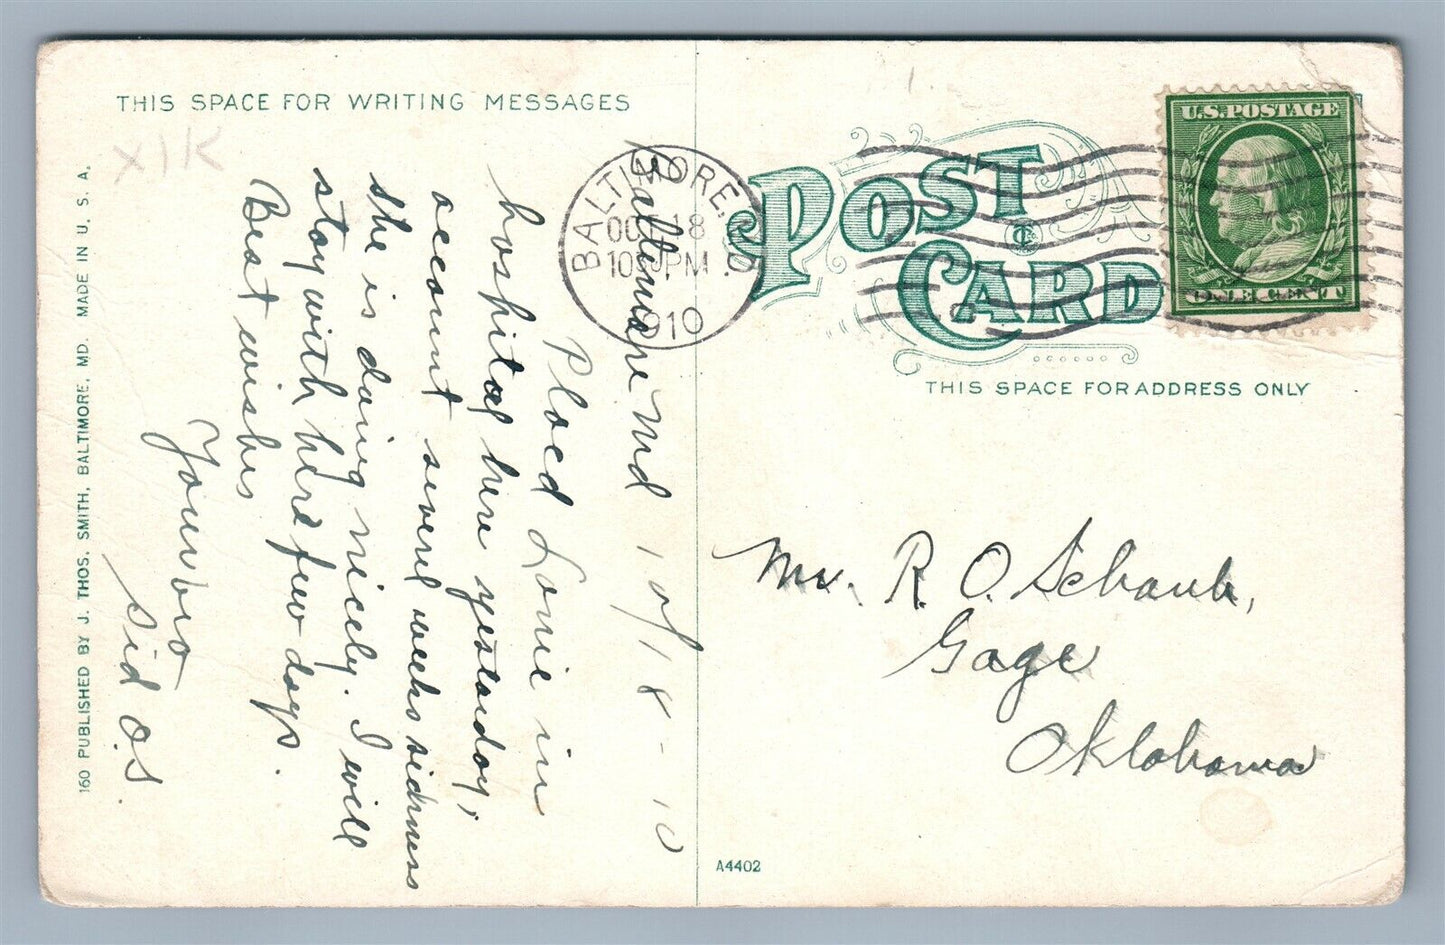 THIS SPACE FOR WRITING MESSAGES
X1K
Baltimore Md 10/18-10
Placed Lonie in
hospital here yesterday;
account several weeks sickness
she is doing nicely. I will
stay with here few days.
Best wishes
Yours
Sid O.S.
160 PUBLISHED BY J. THOS. SMITH, BALTIMORE, MD. MADE IN U. S. A.
BALTIMORE, MD
OCT 18
10 PM
1910
POST CARD
U.S. POSTAGE
ONE CENT
THIS SPACE FOR ADDRESS ONLY
Mr. R. O. Schaub,
Gage
Oklahoma
A4402